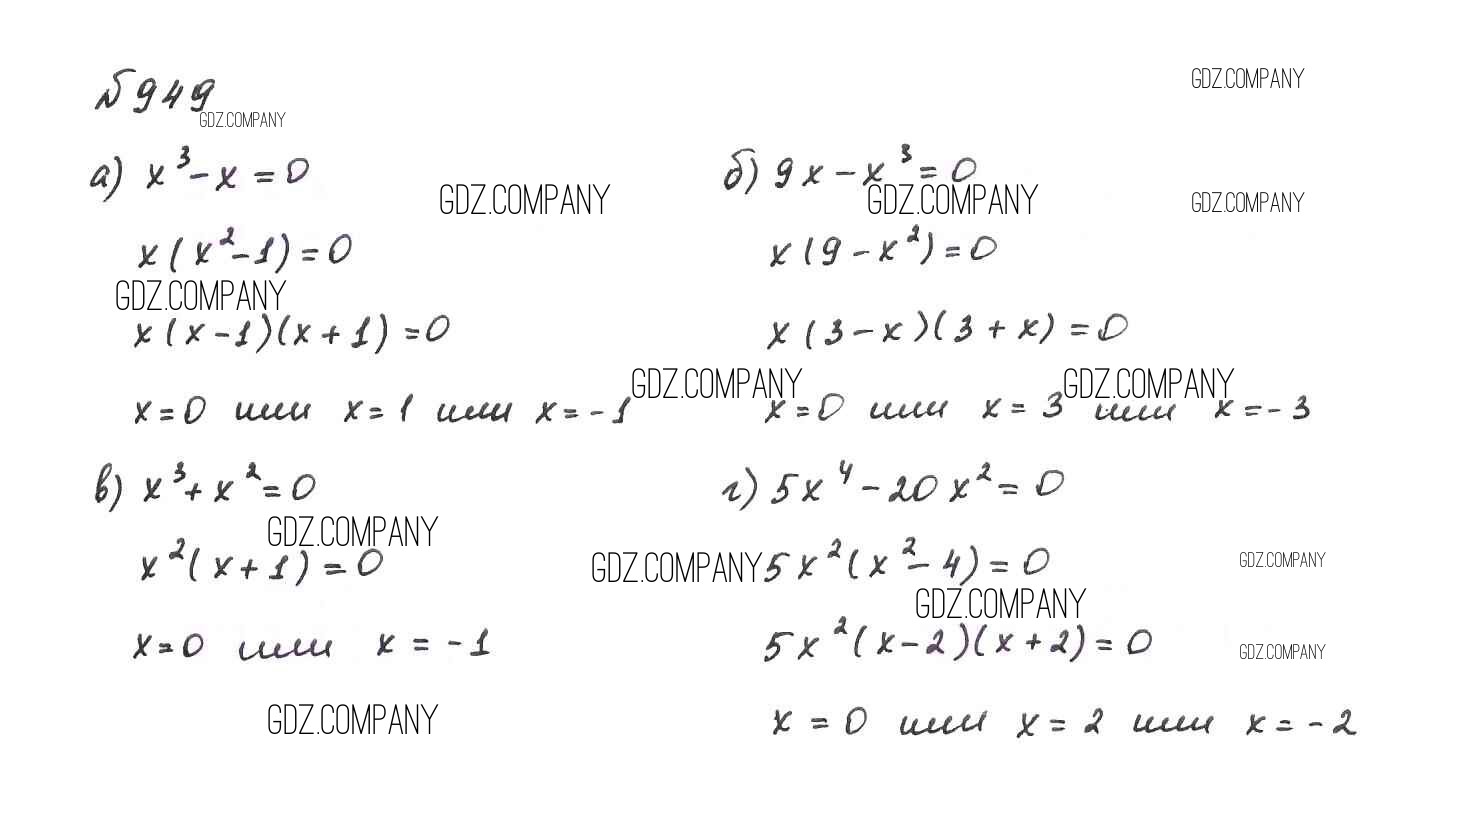 №949
GDZ.COMPANY
GDZ.COMPANY
а) x³-x=0
б) 9x-x³=0
GDZ.COMPANY
GDZ.COMPANY
GDZ.COMPANY
x(x²-1)=0
x(9-x²)=0
GDZ.COMPANY
x(x-1)(x+1)=0
x(3-x)(3+x)=0
GDZ.COMPANY
GDZ.COMPANY
x=0 или x=1 или x=-1
x=0 или x=3 или x=-3
в) x³+x²=0
г) 5x⁴-20x²=0
GDZ.COMPANY
x²(x+1)=0
GDZ.COMPANY
5x²(x²-4)=0
GDZ.COMPANY
GDZ.COMPANY
x=0 или x=-1
5x²(x-2)(x+2)=0
GDZ.COMPANY
GDZ.COMPANY
x=0 или x=2 или x=-2